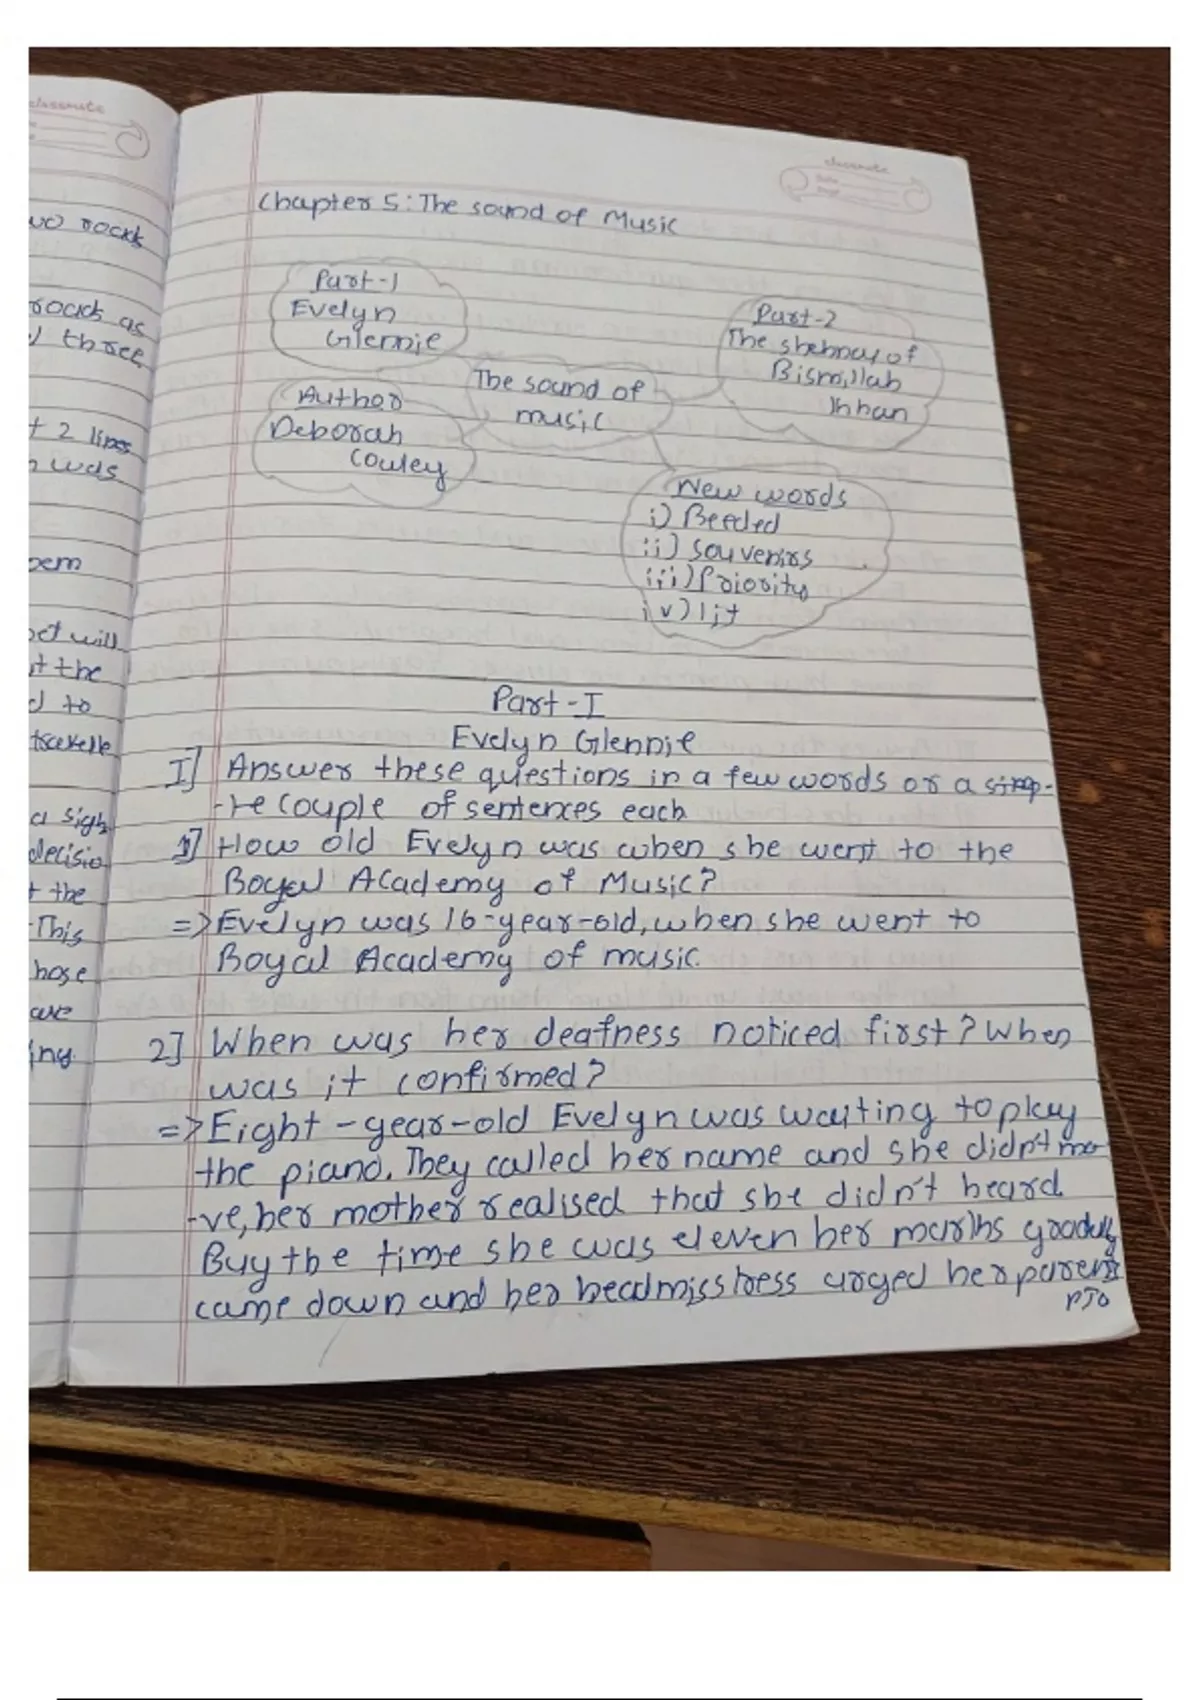 classmate
classmate
Date
Page
wo rocks
rocks as
three
t 2 lines
was
oem
oet will
t the
d to
a sigh
decisio
t the
This
hose
are
ing
Chapter 5: The sound of Music
Part-1
Evelyn
Glennie
Part-2
The shehnay of
Bismillah
Khan
The sound of
music
Author
Deborah
Cowley
New words
i) Beeded
ii) souvenirs
iii) Priority
iv) lit
Part-I
Evelyn Glennie
I] Answer these questions in a few words or a
couple of sentences each
1] How old Evelyn was when she went to the
Royal Academy of Music?
=> Evelyn was 16-year-old, when she went to
Royal Academy of music.
2] When was her deafness noticed first? When
was it confirmed?
=> Eight-year-old Evelyn was waiting to play
the piano. They called her name and she didn't mo-
-ve, her mother realised that she didn't heard.
Buy the time she was eleven her marks
came down and her headmisstress urged her parents
PTO